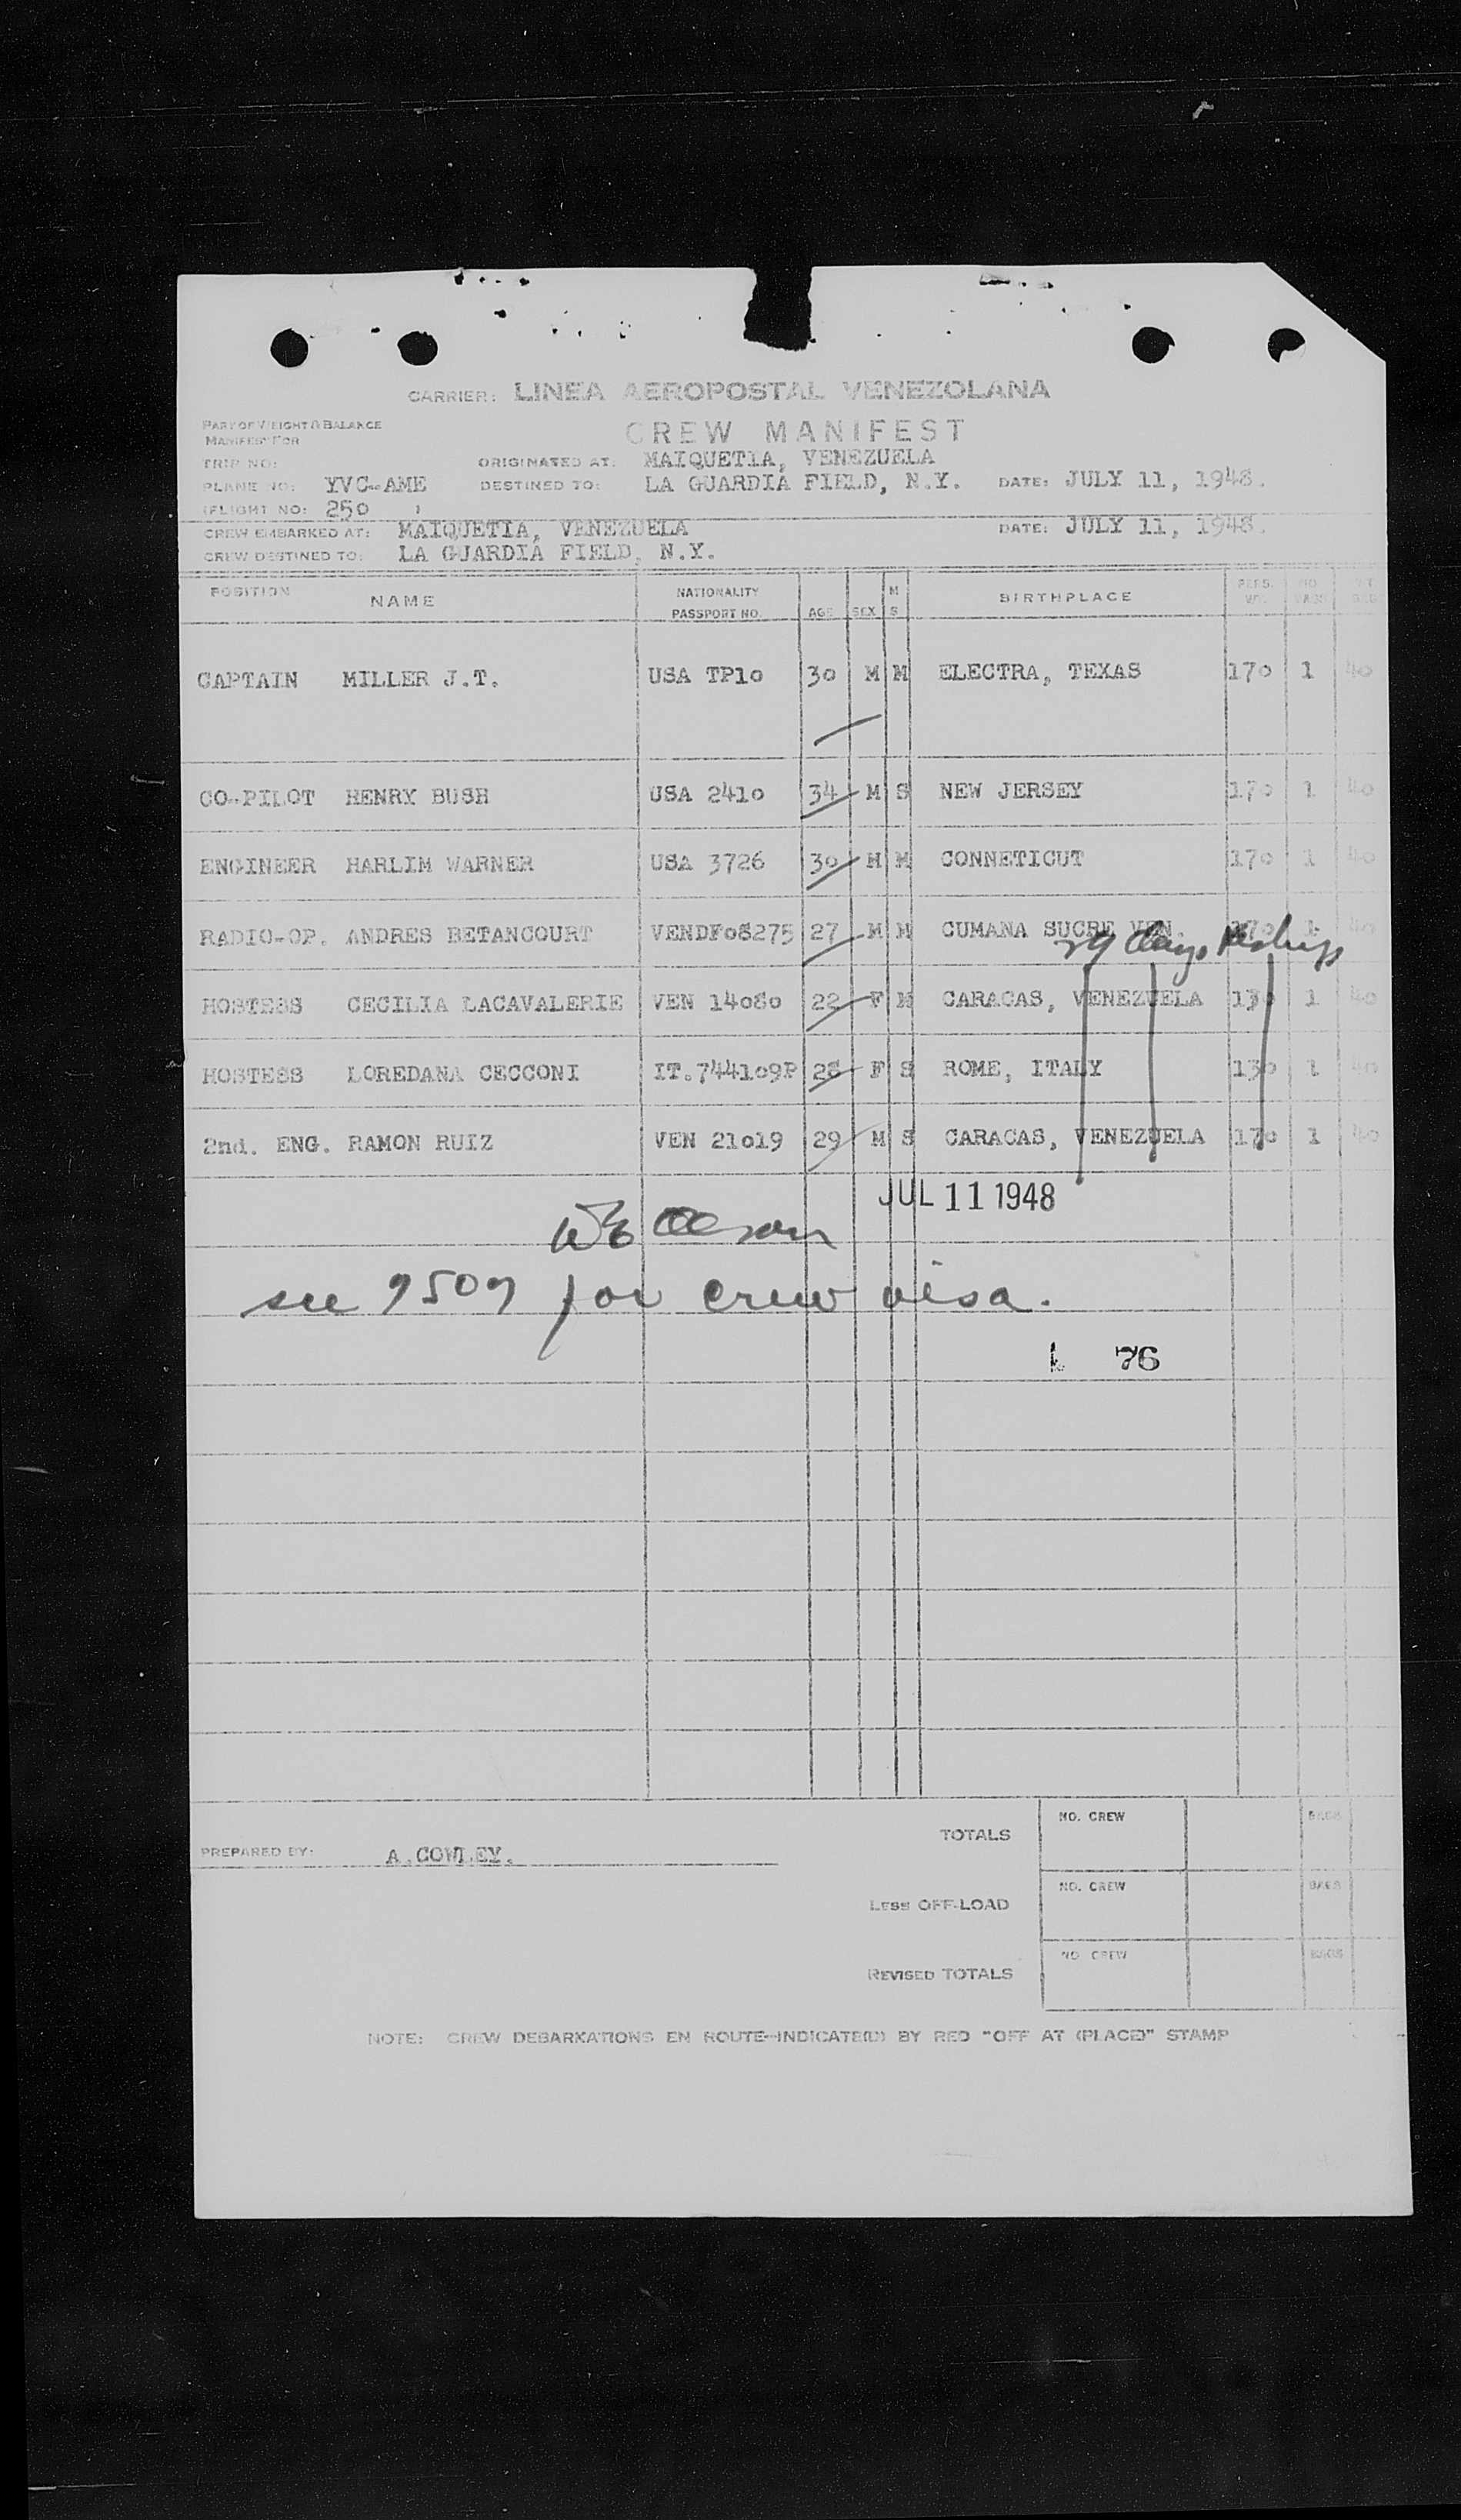 CARRIER: LINEA AEROPOSTAL VENEZOLANA
PART OF WEIGHT & BALANCE
MANIFEST FOR
CREW MANIFEST
TRIP NO: ORIGINATED AT: MAIQUETIA, VENEZUELA
PLANE NO: YVC-AME DESTINED TO: LA GUARDIA FIELD, N.Y. DATE: JULY 11, 1948.
(FLIGHT NO: 250 )
CREW EMBARKED AT: MAIQUETIA, VENEZUELA DATE: JULY 11, 1948.
CREW DESTINED TO: LA GUARDIA FIELD, N.Y.
POSITION NAME NATIONALITY PASSPORT NO. AGE SEX M S BIRTHPLACE PERS. WT. NO. BAGS WT. BAG
CAPTAIN MILLER J.T. USA TP10 30 M M ELECTRA, TEXAS 170 1 40
CO-PILOT HENRY BUSH USA 2410 34 M S NEW JERSEY 170 1 40
ENGINEER HARLIM WARNER USA 3726 30 M M CONNETICUT 170 1 40
RADIO-OP. ANDRES BETANCOURT VENDF08275 27 M M CUMANA SUCRE VEN. 170 1 40
29 days
HOSTESS CECILIA LACAVALERIE VEN 14080 22 F M CARACAS, VENEZUELA 130 1 40
HOSTESS LOREDANA CECCONI IT.744109P 28 F S ROME, ITALY 130 1 40
2nd. ENG. RAMON RUIZ VEN 21019 29 M S CARACAS, VENEZUELA 170 1 40
JUL 11 1948
see 9509 for crew visa.
76
TOTALS NO. CREW BAGS
PREPARED BY: A.COWLEY.
LESS OFF-LOAD NO. CREW BAGS
REVISED TOTALS NO. CREW BAGS
NOTE: CREW DEBARKATIONS EN ROUTE-INDICATE(D) BY RED "OFF AT (PLACE)" STAMP